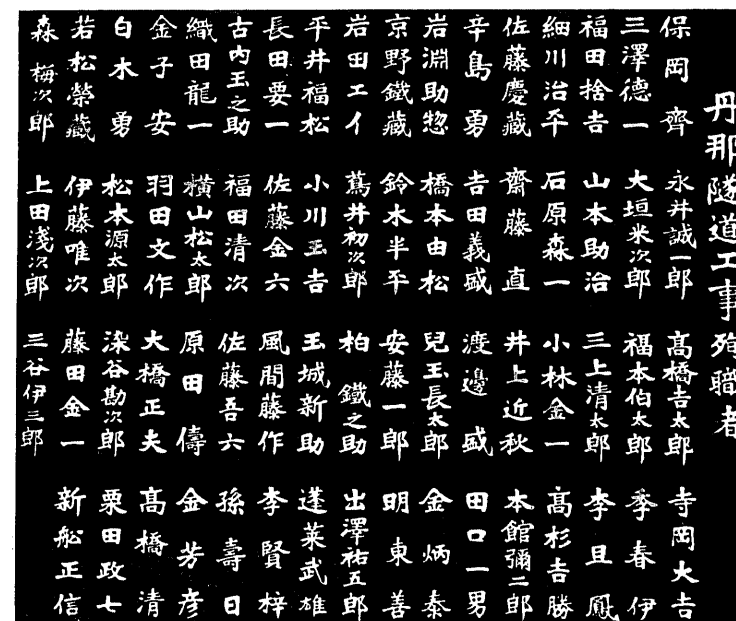 丹那隧道工事殉職者
保岡齊
三澤德一
福田捨吉
細川治平
佐藤慶藏
辛島勇
岩淵助惣
京野鐵藏
岩田エイ
平井福松
長田要一
古内玉之助
織田龍一
金子安
白木勇
若松榮藏
森梅次郎
永井誠一郎
大垣米次郎
山本助治
石原森一
齋藤直
吉田義盛
橋本由松
鈴木半平
蔦井初次郎
小川玉吉
佐藤金六
福田清次
橫山松太郎
羽田文作
松本源太郎
伊藤唯次
上田淺次郎
髙橋吉太郎
福本伯太郎
三上清太郎
小林金一
井上近秋
渡邊盛
兒玉長太郎
安藤一郎
柏鐵之助
玉城新助
風間藤作
佐藤吾六
原田儔
大橋正夫
染谷勘次郎
藤田金一
三谷伊三郎
寺岡大吉
李春伊
李旦鳳
髙杉吉勝
本館彌二郎
田口一男
金炳泰
明東善
出澤祐五郎
蓬萊武雄
李賢梓
孫壽日
金芳彦
髙橋清
栗田政七
新舩正信